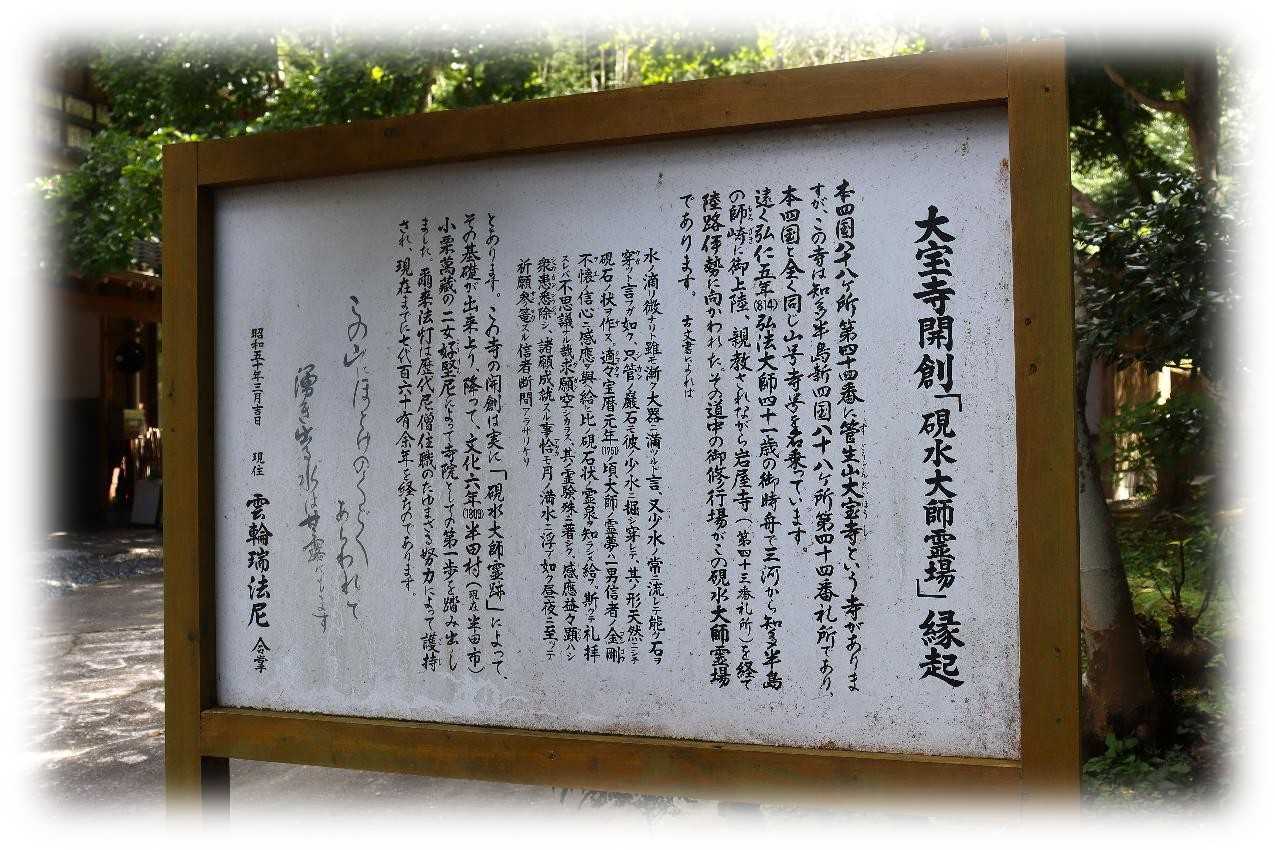 大宝寺開創「硯水大師霊場」縁起
本四国八十八ヶ所第四十四番に菅生山大宝寺という寺がありま
すが、この寺は知多半島新四国八十八ヶ所第四十四番札所であり、
本四国と全く同じ山号寺号を名乗っています。
遠く弘仁五年(814)弘法大師四十一歳の御時舟で三河から知多半島
の師崎に御上陸、親教されながら岩屋寺(第四十三番札所)を経て
陸路伊勢に向かわれた、その道中の御修行場がこの硯水大師霊場
であります。 古文書によれば
水ノ滴ノ微ナリ雖モ漸ク大器ニ満ツルト言、又少水ノ常ニ流レテ能ク石ヲ
穿ツト言フガ如ク、只管ノ巌石モ彼ノ少水ニ掘シ穿レテ、其ノ形天然ニシテ
硯石ノ状ヲ作ス、適々宝暦元年(1751)頃大師ノ霊夢ハ一男信者ノ金剛
不懐ノ信心ニ感應ヲ與ヘ給ヒ比ノ硯石状ノ霊泉ヲ知ラシメ給フ、斯ッテ礼拝
スレバ不思議ナル哉求願空シカラズ、其ノ霊験殊ニ著シク、感應益々顕ハシ
衆患悉除シ、諸願成就スル事恰モ月ノ満水ニ浮ブ如ク昼夜ニ至ッテ
祈願参篭スル信者断間アラザリケリ
とあります。この寺の開創は実に「硯水大師霊跡」によって、
その基礎が出来上り、降って、文化六年(1809)半田村(現在半田市)
小栗萬蔵の二女好堅尼によって寺院としての第一歩を踏み出し
ました。爾来法灯は歴代尼僧住職のたゆまざる努力によって護持
され、現在までに七代百六十有余年を経たのであります。
この山にほとけのくどく
あらわれて
湧き出る水は甘露なります
昭和五十年三月吉日 現住 雲輪瑞法尼 合掌